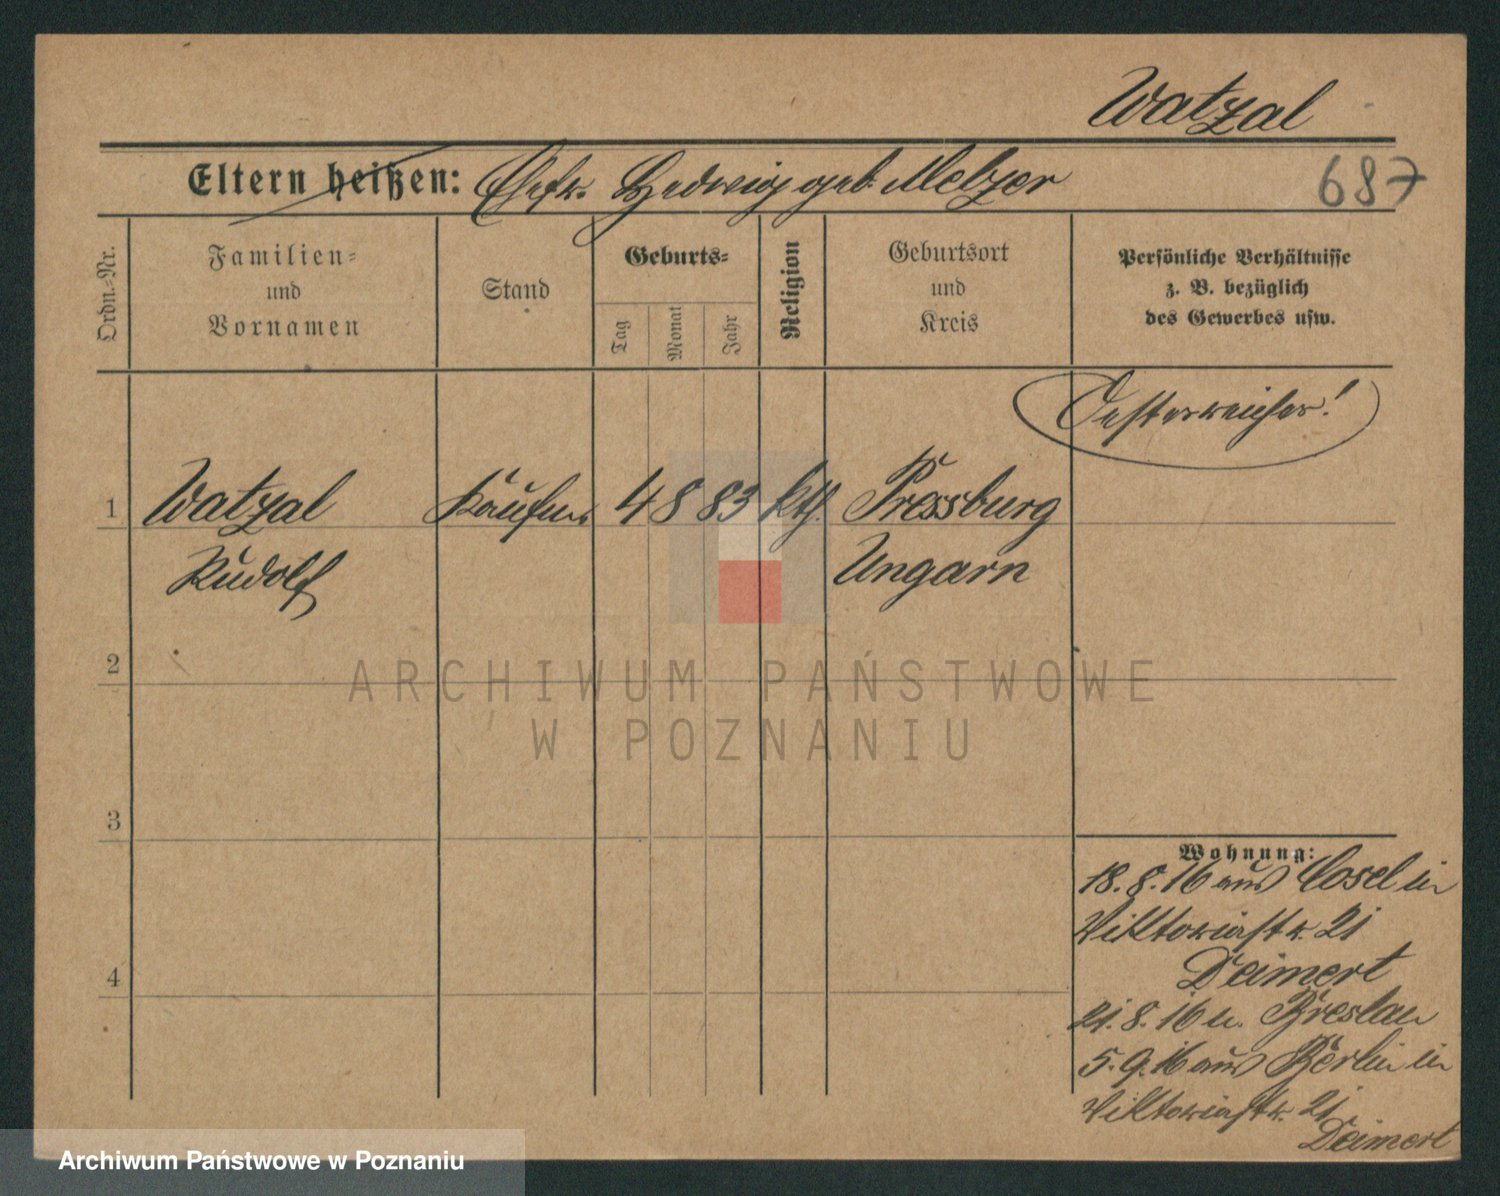 Watzal
Eltern heißen: Ehefr. Hedwig geb. Melzer
687
Ordn.-Nr.
Familien-
und
Vornamen
Stand
Geburts-
Tag
Monat
Jahr
Religion
Geburtsort
und
Kreis
Persönliche Verhältnisse
z. B. bezüglich
des Gewerbes usw.
Oesterreicher!
1 Watzal Kaufm. 4 8 83 kth. Pressburg
Rudolf Ungarn
2
3
4
Wohnung:
18.8.16 aus Cosel in
Viktoriastr. 21
Deimert
21.8.16 n. Breslau
5.9.16 aus Berlin in
Viktoriastr. 21
Deimert
ARCHIWUM PAŃSTWOWE
W POZNANIU
Archiwum Państwowe w Poznaniu